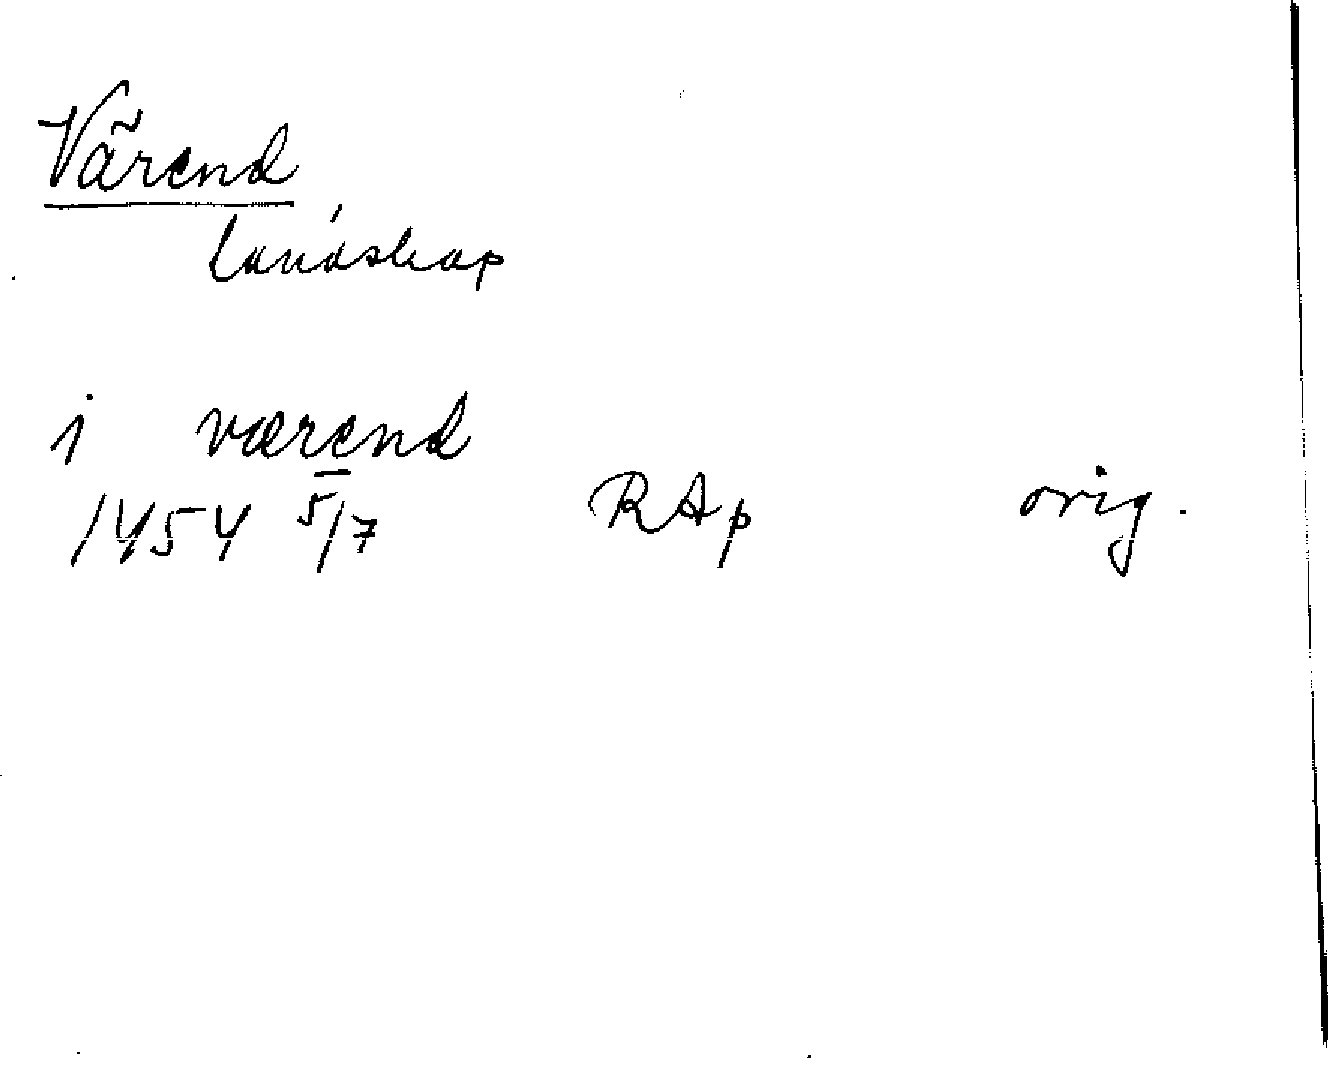 Värend
Landskap
i værend
1454 5/7 RAp orig.